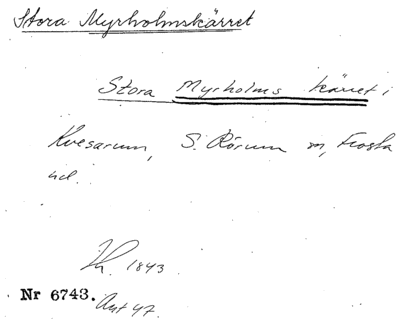 Stora Myrholmskärret
Stora Myrholms kärret i
Kvesarum, S. Rörum m, Frosta
hd.
1843.
Nr 6743.
Ant 47.